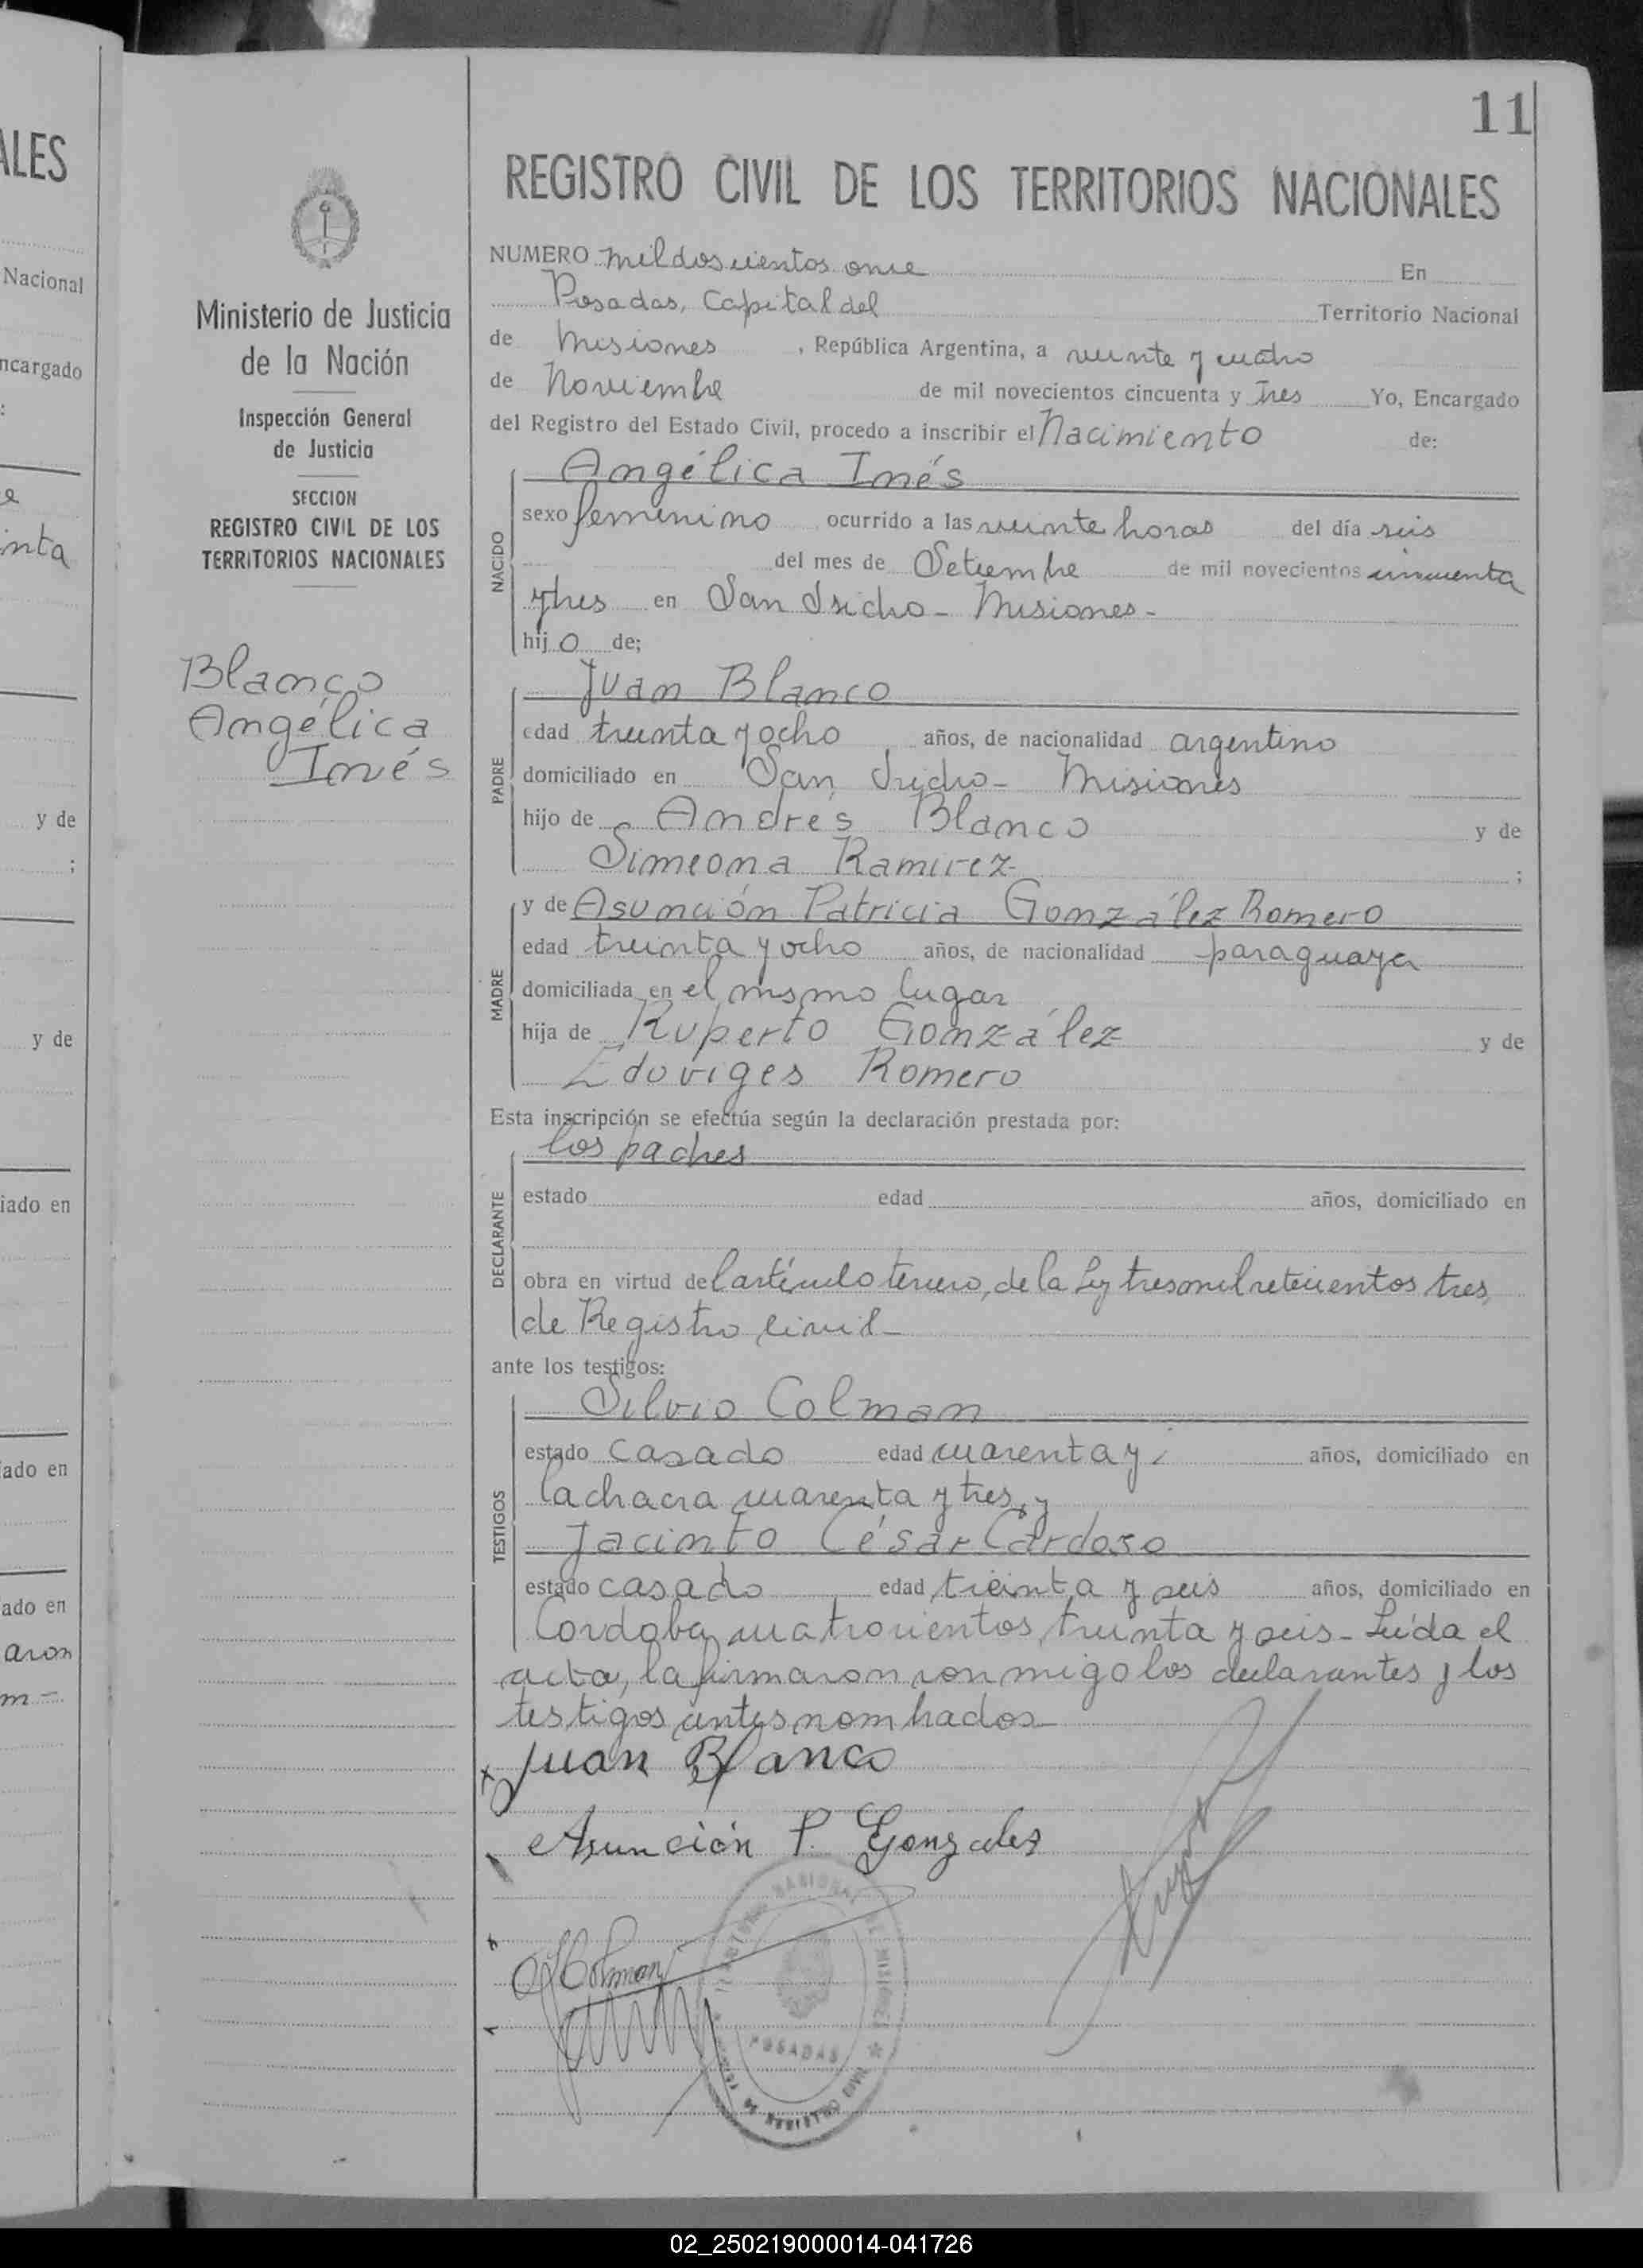 ALES
Nacional
ncargado
:
e
inta
y de
;
y de
iado en
ado en
ado en
aron
m -
Ministerio de Justicia
de la Nación
Inspección General
de Justicia
SECCION
REGISTRO CIVIL DE LOS
TERRITORIOS NACIONALES
Blanco
Angélica
Inés
11
REGISTRO CIVIL DE LOS TERRITORIOS NACIONALES
NUMERO mil doscientos once En
Posadas, Capital del Territorio Nacional
de Misiones , República Argentina, a veinte y cuatro
de Noviembre de mil novecientos cincuenta y tres Yo, Encargado
del Registro del Estado Civil, procedo a inscribir el Nacimiento de:
NACIDO
Angélica Inés
sexo femenino ocurrido a las veinte horas del día seis
del mes de Setiembre de mil novecientos cincuenta
y tres en San Isidro - Misiones -
hijo de;
PADRE
Juan Blanco
edad treinta y ocho años, de nacionalidad argentino
domiciliado en San Isidro - Misiones
hijo de Andrés Blanco y de
Simeona Ramirez ;
MADRE
y de Asunción Patricia González Romero
edad treinta y ocho años, de nacionalidad paraguaya
domiciliada en el mismo lugar
hija de Ruperto González y de
Edoviges Romero
Esta inscripción se efectúa según la declaración prestada por:
DECLARANTE
los padres
estado edad años, domiciliado en
obra en virtud del artículo tercero, de la Ley tres mil setecientos tres
de Registro Civil -
ante los testigos:
TESTIGOS
Silvio Colman
estado casado edad cuarenta y años, domiciliado en
la chacra cuarenta y tres, y
Jacinto César Cardozo
estado casado edad treinta y seis años, domiciliado en
Cordoba cuatrocientos treinta y seis - Leída el
acta, la firmaron conmigo los declarantes y los
testigos antes nombrados -
Juan Blanco
Asunción P. Gonzalez
Colman
POSADAS
02_250219000014-041726